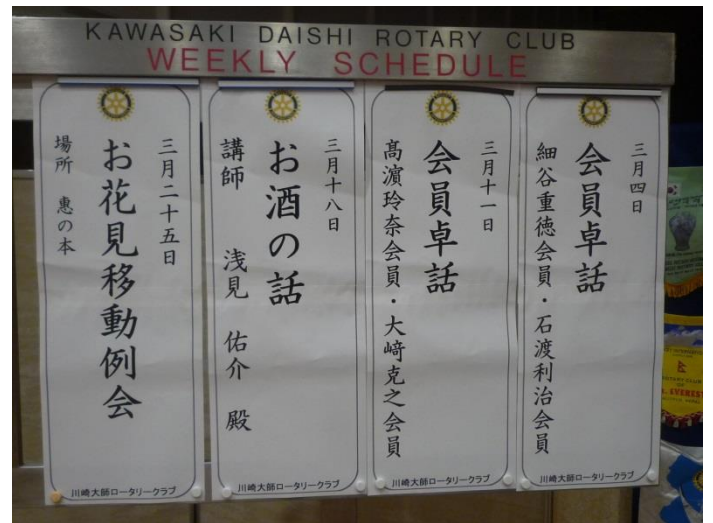 KAWASAKI DAISHI ROTARY CLUB
WEEKLY SCHEDULE
三月四日
会員卓話
細谷重徳会員・石渡利治会員
川崎大師ロータリークラブ
三月十一日
会員卓話
高濵玲奈会員・大﨑克之会員
川崎大師ロータリークラブ
三月十八日
お酒の話
講師 浅見 佑介 殿
川崎大師ロータリークラブ
三月二十五日
お花見移動例会
場所 恵の本
川崎大師ロータリークラブ
ROTARY CLUB
OF
EVEREST